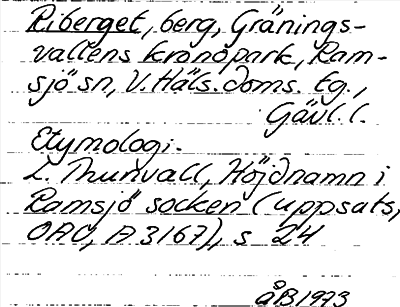 Riberget, berg, Gränings-
vallens kronopark, Ram-
sjö sn, V. Häls. doms. tg.,
Gävl. l.
Etymologi.
L. Thunvall, Höjdnamn i
Ramsjö socken (uppsats,
OAU, A 3167), s 24
ÅB 1973